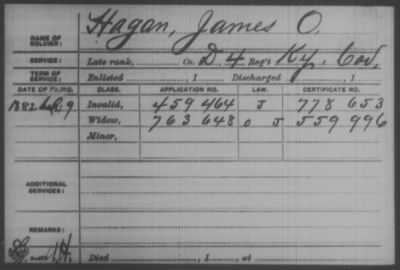 NAME OF SOLDIER: Hagan, James O.
SERVICE: Late rank, Co. D, 4 Reg't Ky. Cav,
TERM OF SERVICE: Enlisted , 1 Discharged , 1
DATE OF FILING. CLASS. APPLICATION NO. LAW. CERTIFICATE NO.
1882 9 Invalid, 459 464 J 778 653
Widow, 763 648 J 559 996
Minor,
ADDITIONAL SERVICES:
REMARKS:
Died , 1 , at